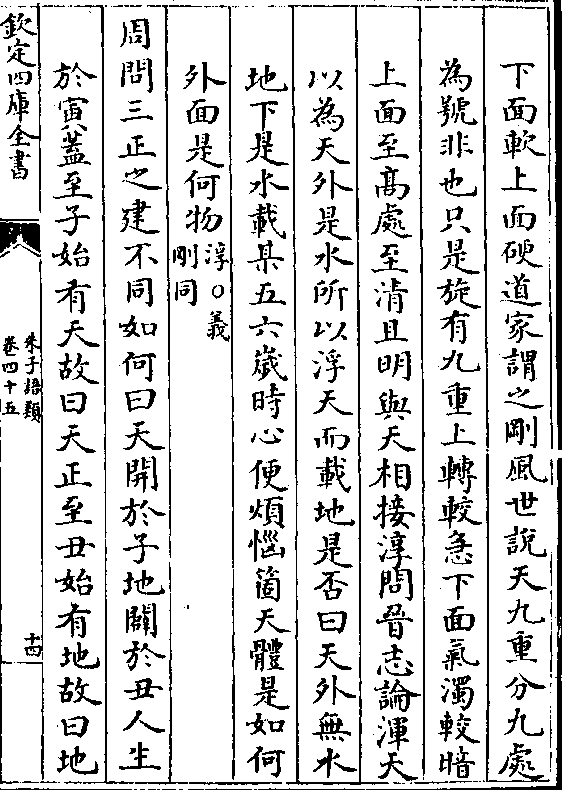 下面軟上面硬道家謂之剛風世說天九重分九處
為號非也只是旋有九重上轉較急下面氣濁較暗
上面至髙處至清且明與天相接淳問晉志論渾天
以為天外是水所以浮天而載地是否曰天外無水
地下是水載某五六歲時心便煩惱箇天體是如何
外面是何物淳○義剛同
周問三正之建不同如何曰天開於子地闢於丑人生
於寅蓋至子始有天故曰天正至丑始有地故曰地
欽定四庫全書
朱子語類
卷四十五
十四